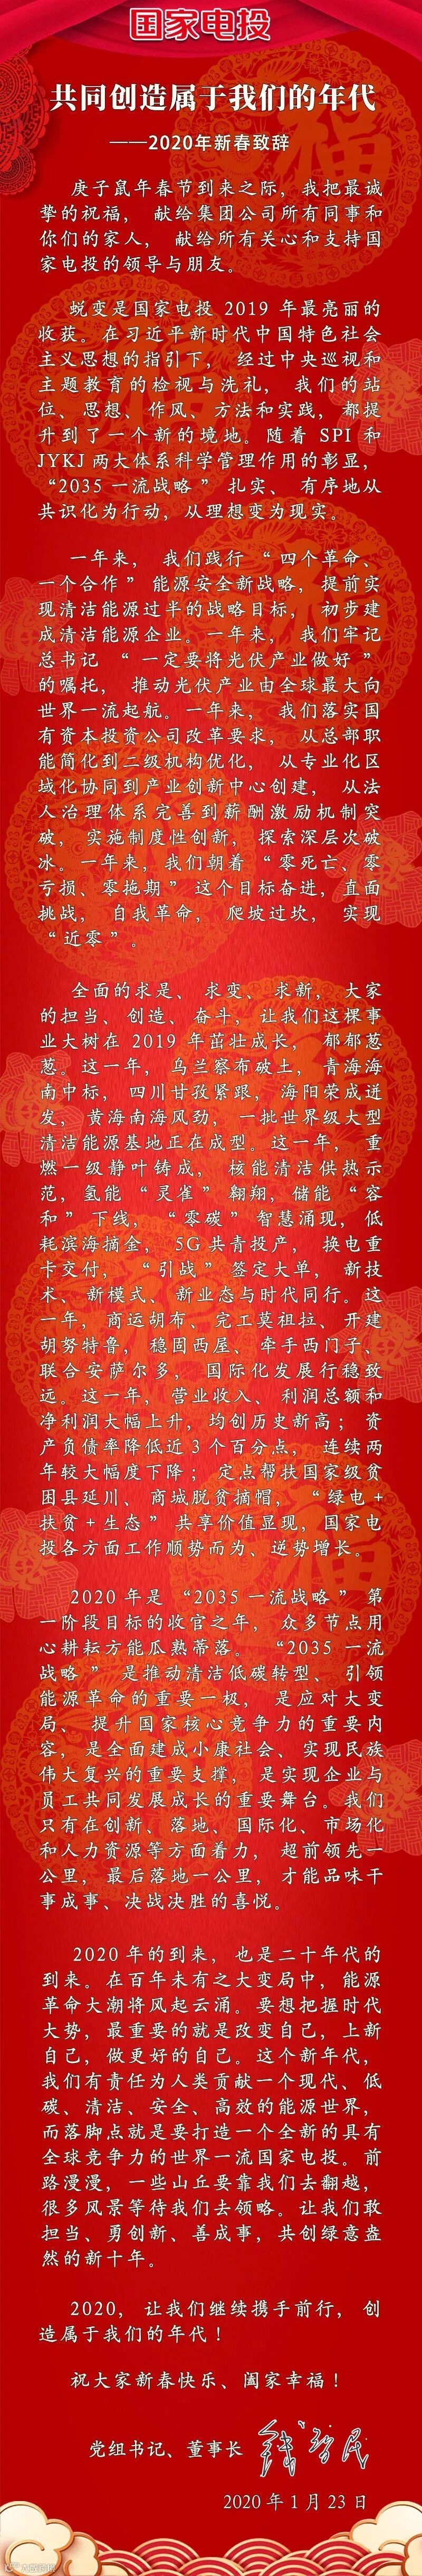 国家电投
共同创造属于我们的年代
——2020年新春致辞
庚子鼠年春节到来之际，我把最诚
挚的祝福， 献给集团公司所有同事和
你们的家人， 献给所有关心和支持国
家电投的领导与朋友。
蜕变是国家电投 2019 年最亮丽的
收获。在习近平新时代中国特色社会
主义思想的指引下， 经过中央巡视和
主题教育的检视与洗礼， 我们的站
位、思想、作风、方法和实践，都提
升到了一个新的境地。随着 SPI 和
JYKJ 两大体系科学管理作用的彰显，
“2035 一流战略 ” 扎实、 有序地从
共识化为行动，从理想变为现实。
一年来， 我们践行 “四个革命、
一个合作 ” 能源安全新战略，提前实
现清洁能源过半的战略目标， 初步建
成清洁能源企业。一年来， 我们牢记
总书记 “ 一定要将光伏产业做好 ”
的嘱托， 推动光伏产业由全球最大向
世界一流起航。一年来， 我们落实国
有资本投资公司改革要求， 从总部职
能简化到二级机构优化， 从专业化区
域化协同到产业创新中心创建， 从法
人治理体系完善到薪酬激励机制突
破， 实施制度性创新， 探索深层次破
冰。一年来，我们朝着 “零死亡、零
亏损、零拖期 ” 这个目标奋进，直面
挑战， 自我革命， 爬坡过坎， 实现
“近零 ” 。
全面的求是、 求变、 求新，大家
的担当、 创造、 奋斗，让我们这棵事
业大树在 2019 年茁壮成长， 郁郁葱
葱。这一年，乌兰察布破土， 青海海
南中标， 四川甘孜紧跟， 海阳荣成迸
发， 黄海南海风劲， 一批世界级大型
清洁能源基地正在成型。这一年， 重
燃一级静叶铸成， 核能清洁供热示
范，氢能 “灵雀 ” 翱翔，储能 “容
和” 下线，“零碳 ” 智慧涌现，低
耗滨海摘金， 5G 共青投产， 换电重
卡交付， “引战 ” 签定大单， 新技
术、 新模式、 新业态与时代同行。这
一年， 商运胡布、完工莫祖拉、开建
胡努特鲁， 稳固西屋、 牵手西门子、
联合安萨尔多， 国际化发展行稳致
远。这一年，营业收入、 利润总额和
净利润大幅上升，均创历史新高； 资
产负债率降低近 3 个百分点， 连续两
年较大幅度下降； 定点帮扶国家级贫
困县延川、 商城脱贫摘帽， “绿电 +
扶贫 + 生态 ” 共享价值显现，国家电
投各方面工作顺势而为、逆势增长。
2020 年是 “2035 一流战略 ” 第
一阶段目标的收官之年， 众多节点用
心耕耘方能瓜熟蒂落。 “2035 一流
战略 ” 是推动清洁低碳转型、 引领
能源革命的重要一极， 是应对大变
局、 提升国家核心竞争力的重要内
容，是全面建成小康社会、实现民族
伟大复兴的重要支撑， 是实现企业与
员工共同发展成长的重要舞台。我们
只有在创新、落地、国际化、市场化
和人力资源等方面着力， 超前领先一
公里，最后落地一公里，才能品味干
事成事、决战决胜的喜悦。
2020 年的到来，也是二十年代的
到来。在百年未有之大变局中，能源
革命大潮将风起云涌。要想把握时代
大势，最重要的就是改变自己，上新
自己，做更好的自己。这个新年代，
我们有责任为人类贡献一个现代、低
碳、清洁、安全、高效的能源世界，
而落脚点就是要打造一个全新的具有
全球竞争力的世界一流国家电投。前
路漫漫，一些山丘要靠我们去翻越，
很多风景等待我们去领略。让我们敢
担当、勇创新、善成事，共创绿意盎
然的新十年。
2020， 让我们继续携手前行， 创
造属于我们的年代！
祝大家新春快乐、阖家幸福！
党组书记、董事长 钱智民
2020 年 1 月 23 日